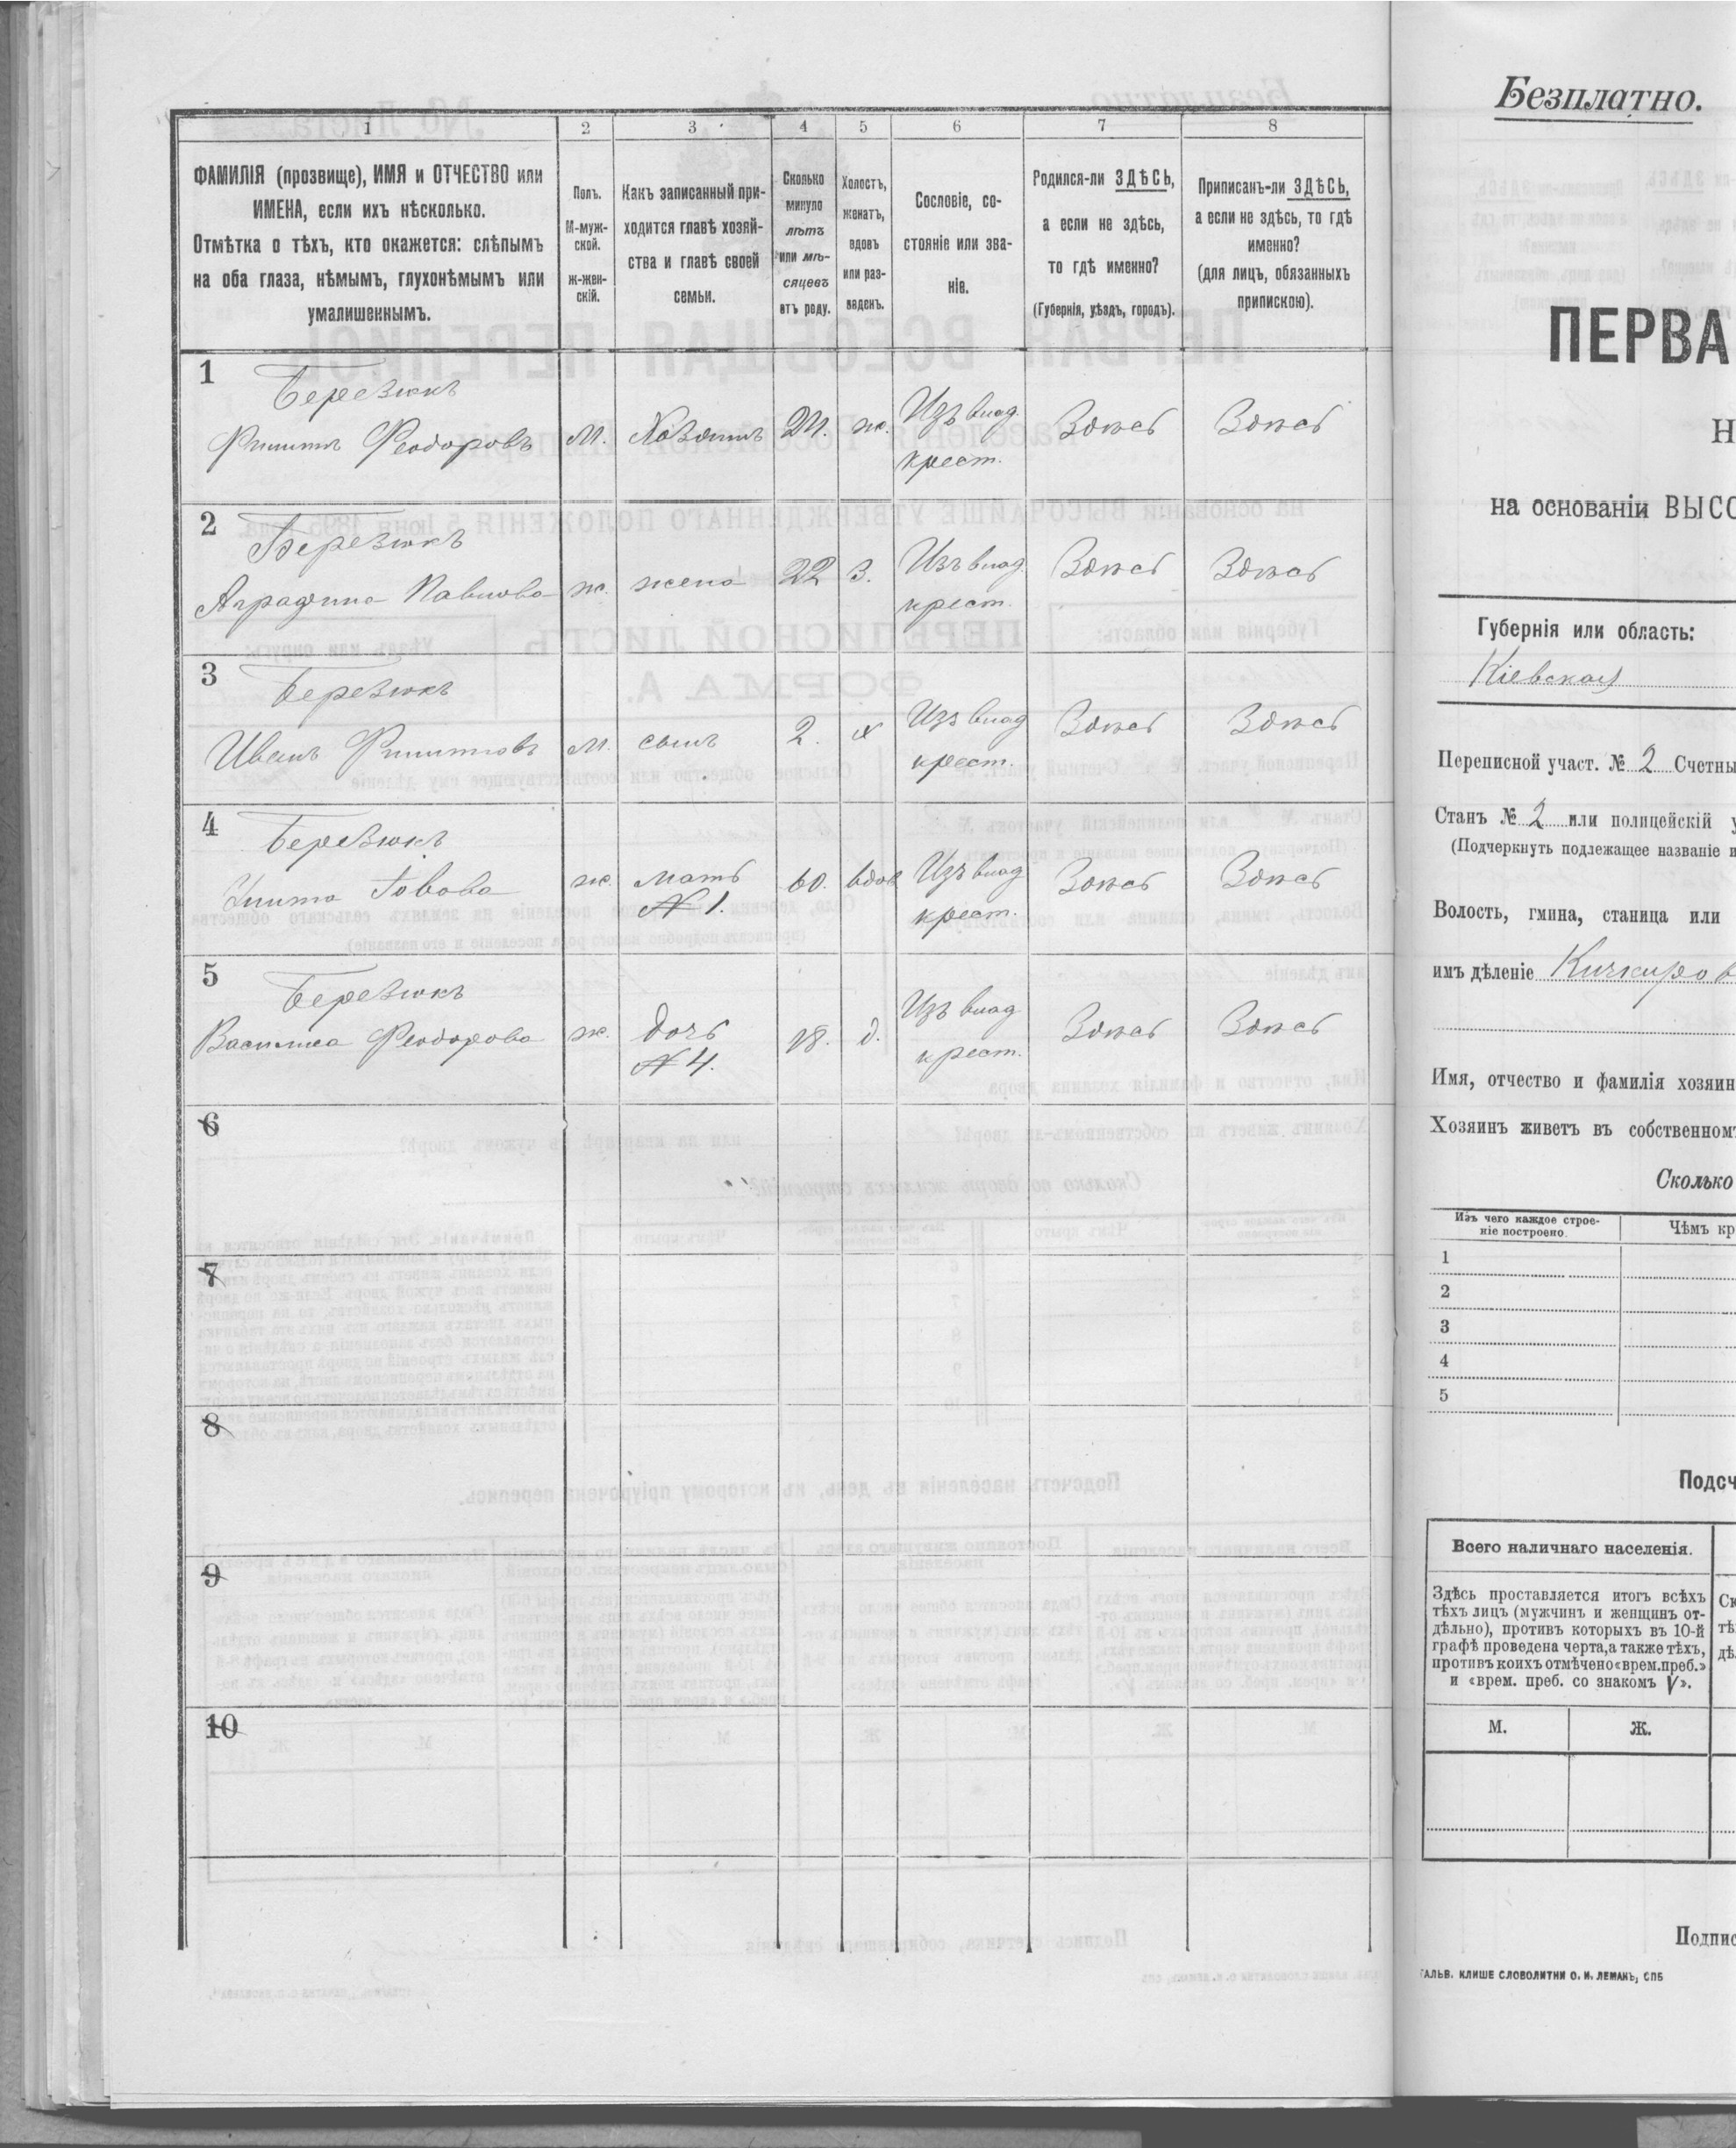 1 2 3 4 5 6 7 8
ФАМИЛІЯ (прозвище), ИМЯ и ОТЧЕСТВО или
ИМЕНА, если ихъ нѣсколько.
Отмѣтка о тѣхъ, кто окажется: слѣпымъ
на оба глаза, нѣмымъ, глухонѣмымъ или
умалишеннымъ.
Полъ.
М-муж-
ской.
ж-жен-
скій.
Какъ записанный при-
ходится главѣ хозяй-
ства и главѣ своей
семьи.
Сколько
минуло
лѣтъ
или мѣ-
сяцевъ
отъ роду.
Холостъ,
женатъ,
вдовъ
или раз-
веденъ.
Сословіе, со-
стояніе или зва-
ніе.
Родился-ли ЗДѢСЬ,
а если не здѣсь,
то гдѣ именно?
(Губернія, уѣздъ, городъ).
Приписанъ-ли ЗДѢСЬ,
а если не здѣсь, то гдѣ
именно?
(для лицъ, обязанныхъ
припискою).
1
Березюкъ
Филиппъ Феодоровъ м. Хозяинъ 24. ж. Изъ влад. крест. Здѣсь Здѣсь
2
Березюкъ
Аграфина Павлова ж. жена 22 З. Изъ влад. крест. Здѣсь Здѣсь
3
Березюкъ
Иванъ Филипповъ м. сынъ 2. х Изъ влад крест. Здѣсь Здѣсь
4
Березюкъ
ж. мать № 1. 60. вдов Изъ влад крест. Здѣсь Здѣсь
5
Березюкъ
Василиса Феодорова ж. дочь № 4. 18. д. Изъ влад крест. Здѣсь Здѣсь
6
7
8
9
10
Безплатно.
ПЕРВА
Н
на основаніи ВЫСО
Губернія или область:
Кіевская
Переписной участ. № 2 Счетны
Станъ № 2 или полицейскій у
(Подчеркнуть подлежащее названіе и
Волость, гмина, станица или
имъ дѣленіе Кичкиров
Имя, отчество и фамилія хозяин
Хозяинъ живетъ въ собственномъ
Сколько
Изъ чего каждое строе-
ніе построено.
Чѣмъ кр
1
2
3
4
5
Подсч
Всего наличнаго населенія.
Здѣсь проставляется итогъ всѣхъ
тѣхъ лицъ (мужчинъ и женщинъ от-
дѣльно), противъ которыхъ въ 10-й
графѣ проведена черта, а также тѣхъ,
противъ коихъ отмѣчено «врем. преб.»
и «врем. преб. со знакомъ V».
Ск
тѣ
дѣ
М. Ж.
Подпис
ГАЛЬВ. КЛИШЕ СЛОВОЛИТНИ О. И. ЛЕМАНЪ, СПБ